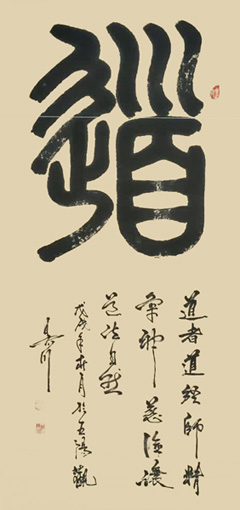 道
道者道經師精
氣神慈儉讓
道法自然
戊戌年月於觀